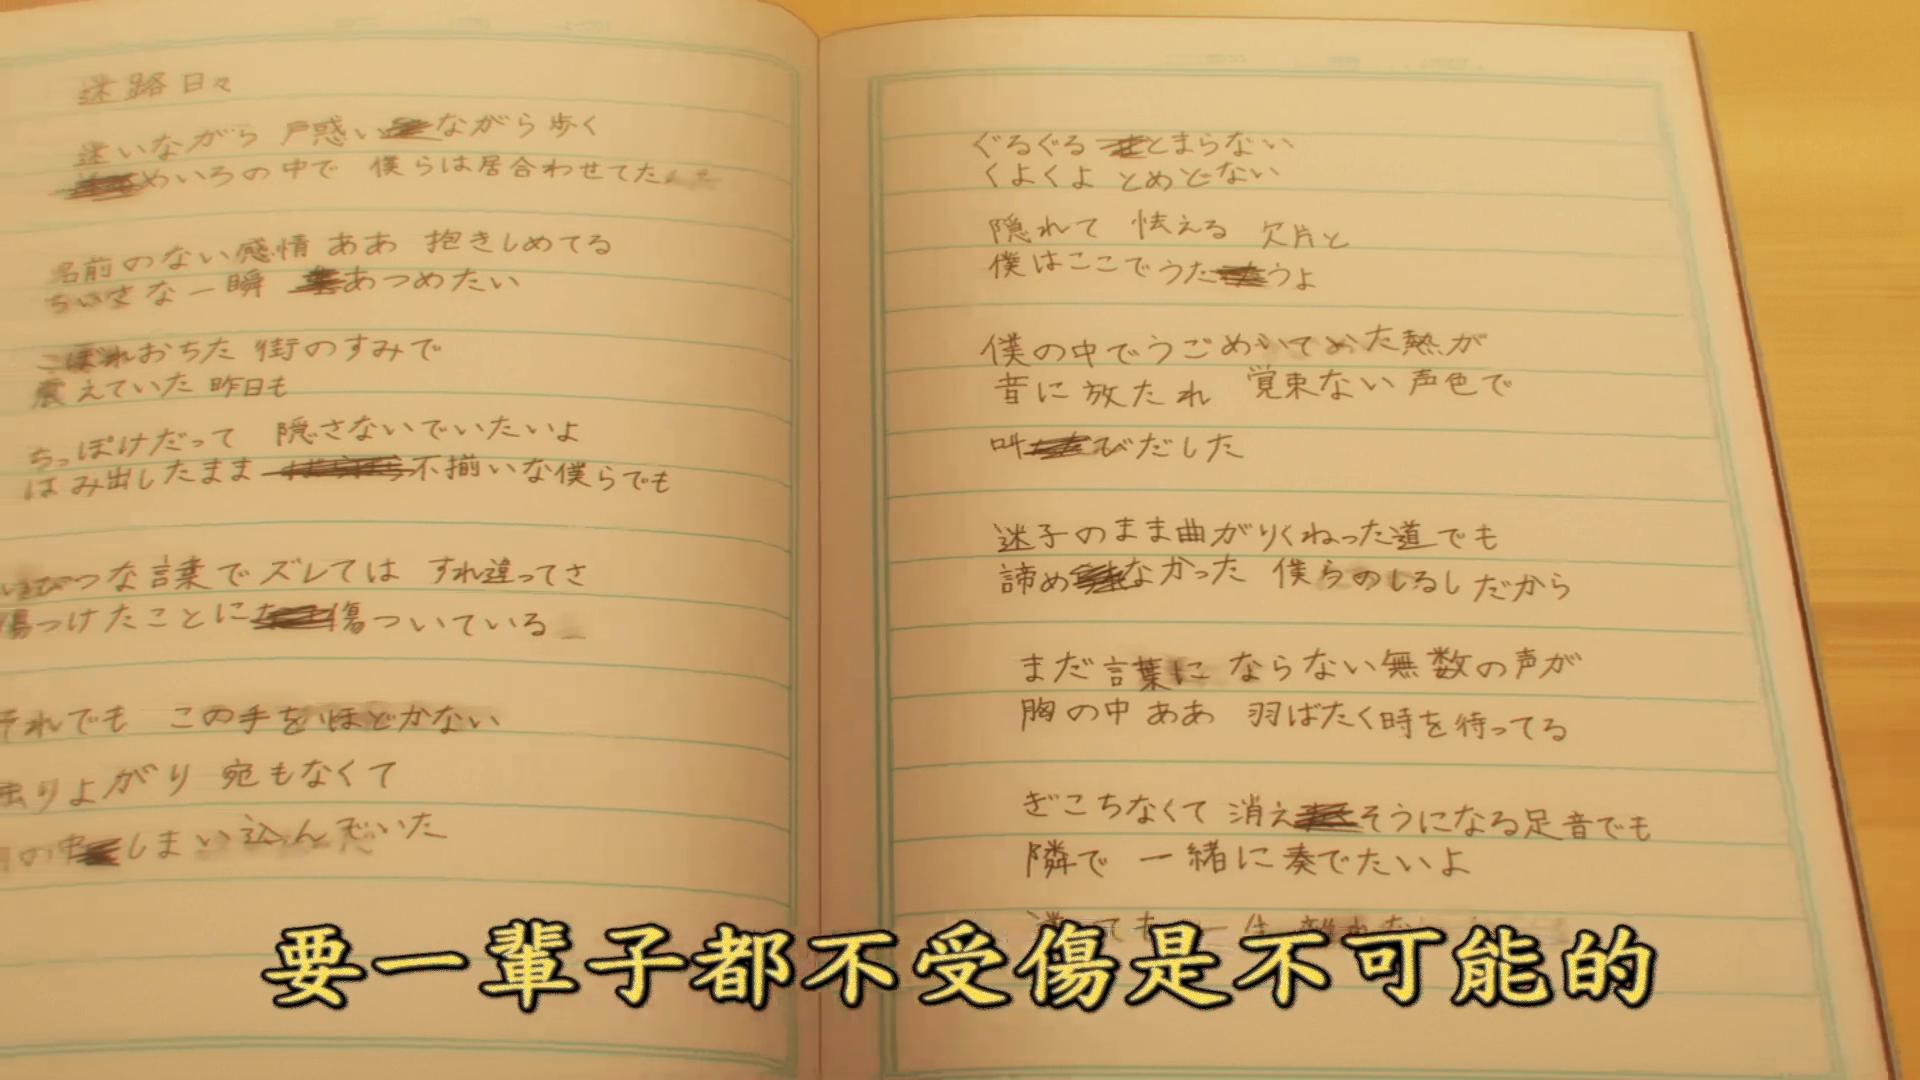 迷路日々
迷いながら 戸惑いながら歩く
めいろの中で 僕らは居合わせてた
名前のない感情 ああ 抱きしめてる
ちいさな一瞬 あつめたい
こぼれおちた 街のすみで
震えていた 昨日も
ちっぽけだって 隠さないでいたいよ
はみ出したまま 不揃いな僕らでも
いびつな言葉でズレては すれ違ってさ
傷つけたことに傷ついている
それでも この手をほどかない
りよがり 宛もなくて
の中しまい込んでいた
ぐるぐる とまらない
くよくよ とめどない
隠れて 怯える 欠片と
僕はここでうたうよ
僕の中でうごめいてた熱が
音に放たれ 覚束ない声色で
叫びだした
迷子のまま曲がりくねった道でも
諦めなかった 僕らのしるしだから
まだ言葉に ならない無数の声が
胸の中 ああ 羽ばたく時を待ってる
ぎこちなくて 消えそうになる足音でも
隣で 一緒に奏でたいよ
要一輩子都不受傷是不可能的